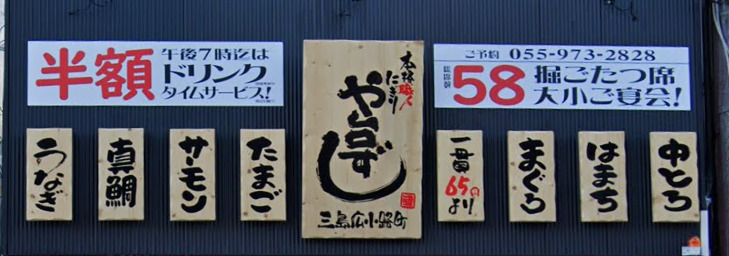 半額
午後7時迄は
ドリンク
タイムサービス!
うなぎ
真鯛
サーモン
たまご
本格職人
にぎり
や台ずし
三島広小路町
ご予約 055-973-2828
58
掘ごたつ席
大小ご宴会!
一貫
65円
より
まぐろ
はまち
中とろ